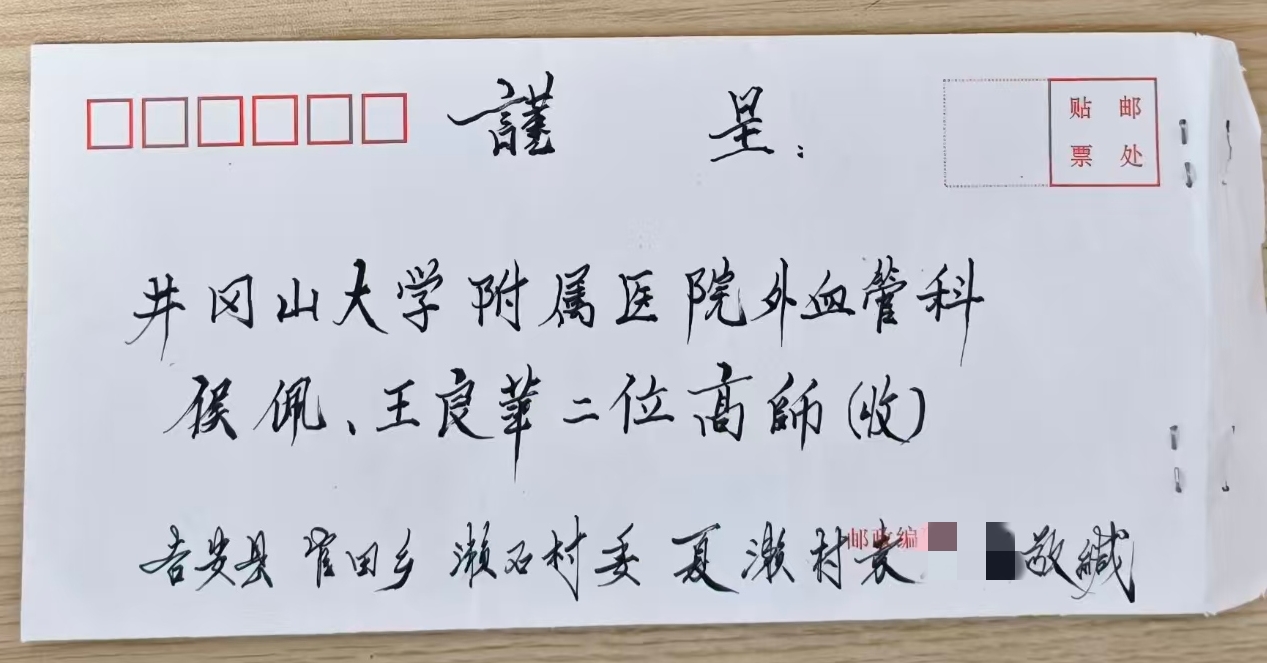 謹呈：
贴邮
票处
井冈山大学附属医院外血管科
侯佩、王良華二位高師（收）
吉安县官田乡濑石村委夏濑村袁 敬缄
邮政编